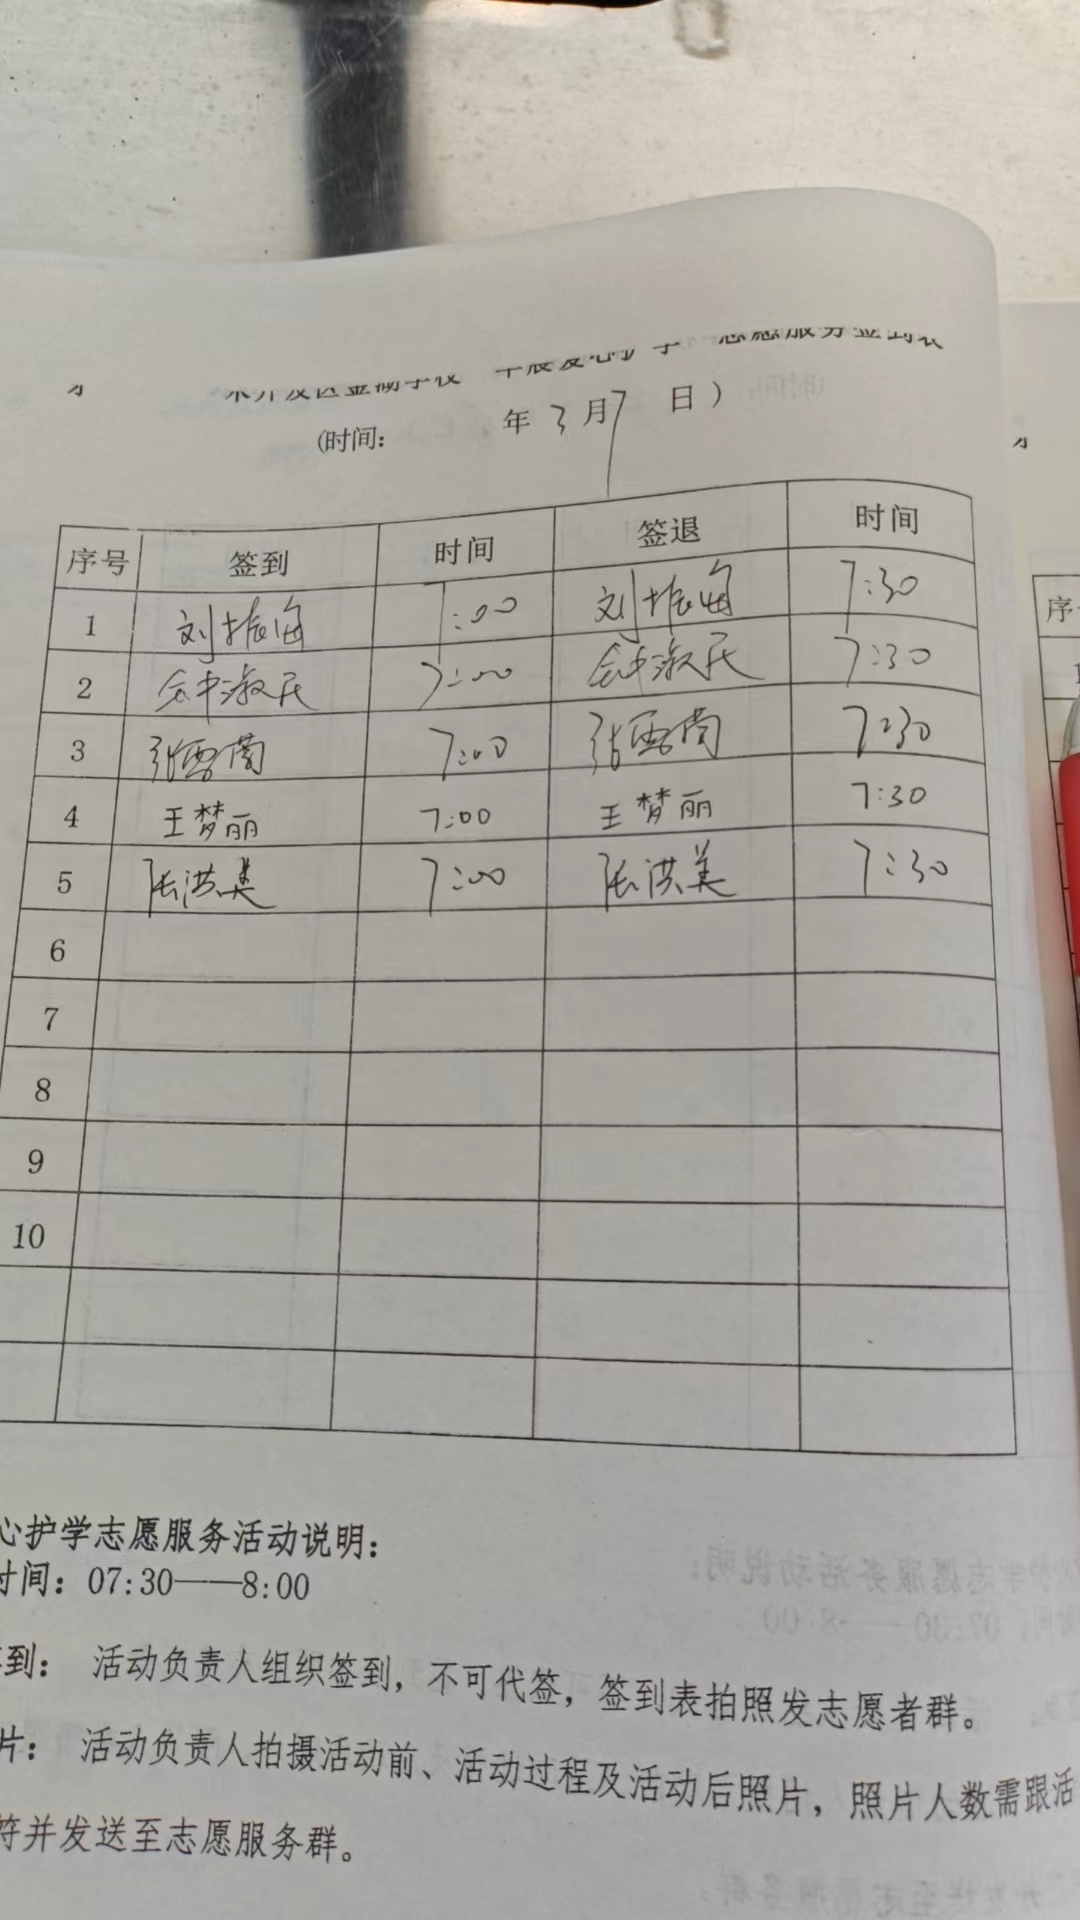 开发区金湖学校“早晨爱心护学”志愿服务签到表
(时间: 年3月7日)
序号 签到 时间 签退 时间
1 刘振海 7:00 刘振海 7:30
2 钟淑民 7:00 钟淑民 7:30
3 张雪茵 7:00 张雪茵 7:30
4 王梦丽 7:00 王梦丽 7:30
5 张洪美 7:00 张洪美 7:30
6
7
8
9
10
心护学志愿服务活动说明:
时间: 07:30——8:00
到: 活动负责人组织签到, 不可代签, 签到表拍照发志愿者群。
片: 活动负责人拍摄活动前、活动过程及活动后照片, 照片人数需跟活
符并发送至志愿服务群。